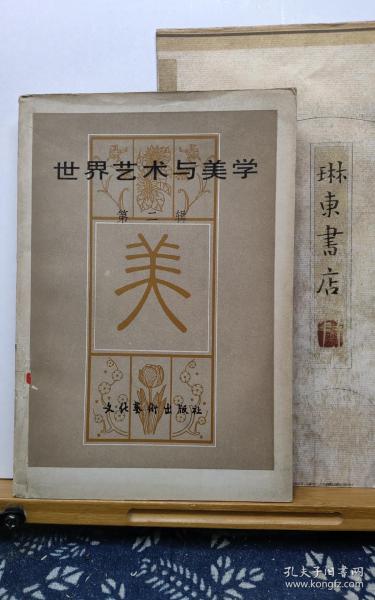 世界艺术与美学
第二辑
美
文化藝術出版社
琳東書店
孔夫子旧书网
www.kongfz.com